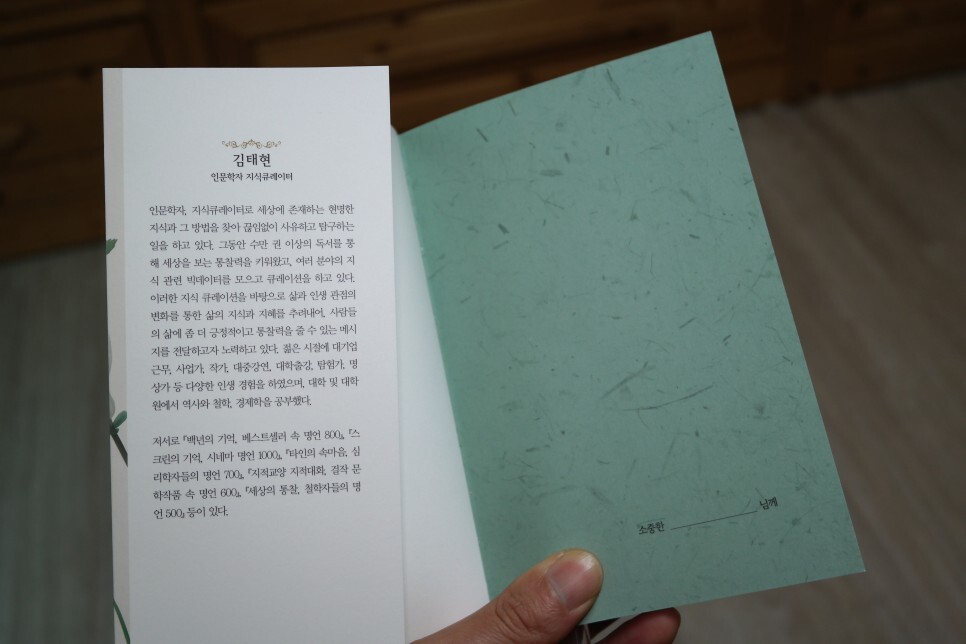 김태현
인문학자 지식큐레이터
인문학자, 지식큐레이터로 세상에 존재하는 현명한
지식과 그 방법을 찾아 끊임없이 사유하고 탐구하는
일을 하고 있다. 그동안 수만 권 이상의 독서를 통
해 세상을 보는 통찰력을 키워왔고, 여러 분야의 지
식 관련 빅데이터를 모으고 큐레이션을 하고 있다.
이러한 지식 큐레이션을 바탕으로 삶과 인생 관점의
변화를 통한 삶의 지식과 지혜를 추려내어, 사람들
의 삶에 좀 더 긍정적이고 통찰력을 줄 수 있는 메시
지를 전달하고자 노력하고 있다. 젊은 시절에 대기업
근무, 사업가, 작가, 대중강연, 대학출강, 탐험가, 명
상가 등 다양한 인생 경험을 하였으며, 대학 및 대학
원에서 역사와 철학, 경제학을 공부했다.
저서로 『백년의 기억, 베스트셀러 속 명언 800』, 『스
크린의 기억, 시네마 명언 1000』, 『타인의 속마음, 심
리학자들의 명언 700』, 『지적교양 지적대화, 걸작 문
학작품 속 명언 600』, 『세상의 통찰, 철학자들의 명
언 500』 등이 있다.
소중한 __________ 님께